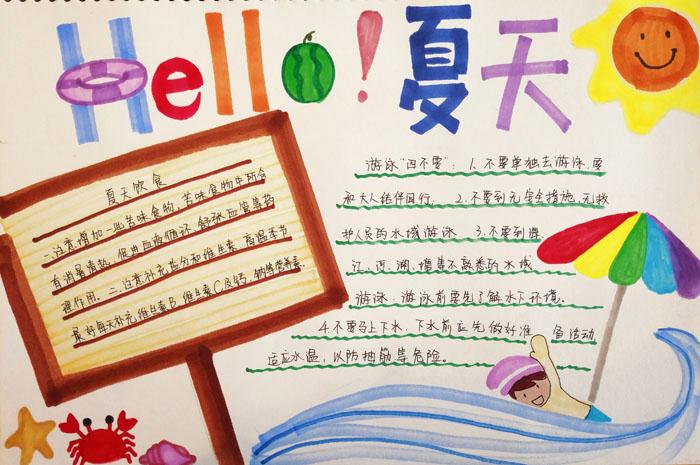 Hello!夏天
夏天饮食
一.注意增加一些苦味食物,苦味食物中所含
有消暑清热,促进血液循环、舒张血管等药
理作用。二.注意补充盐分和维生素,高温季节
最好每天补充维生素B、维生素C及钙,钠等营养素.
游泳"四不要": 1.不要单独去游泳,要
和大人结伴同行. 2.不要到无安全措施、无救
护人员的水域游泳 3.不要到
江、河、湖、塘等不熟悉的水域
游泳,游泳前要先了解水下环境。
4.不要马上下水、下水前应先做好准 备活动,
适应水温,以防抽筋等危险。